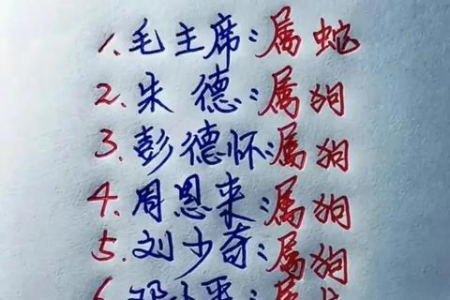 1.毛主席:属蛇
2.朱德:属狗
3.彭德怀:属狗
4.周恩来:属狗
5.刘少奇:属狗